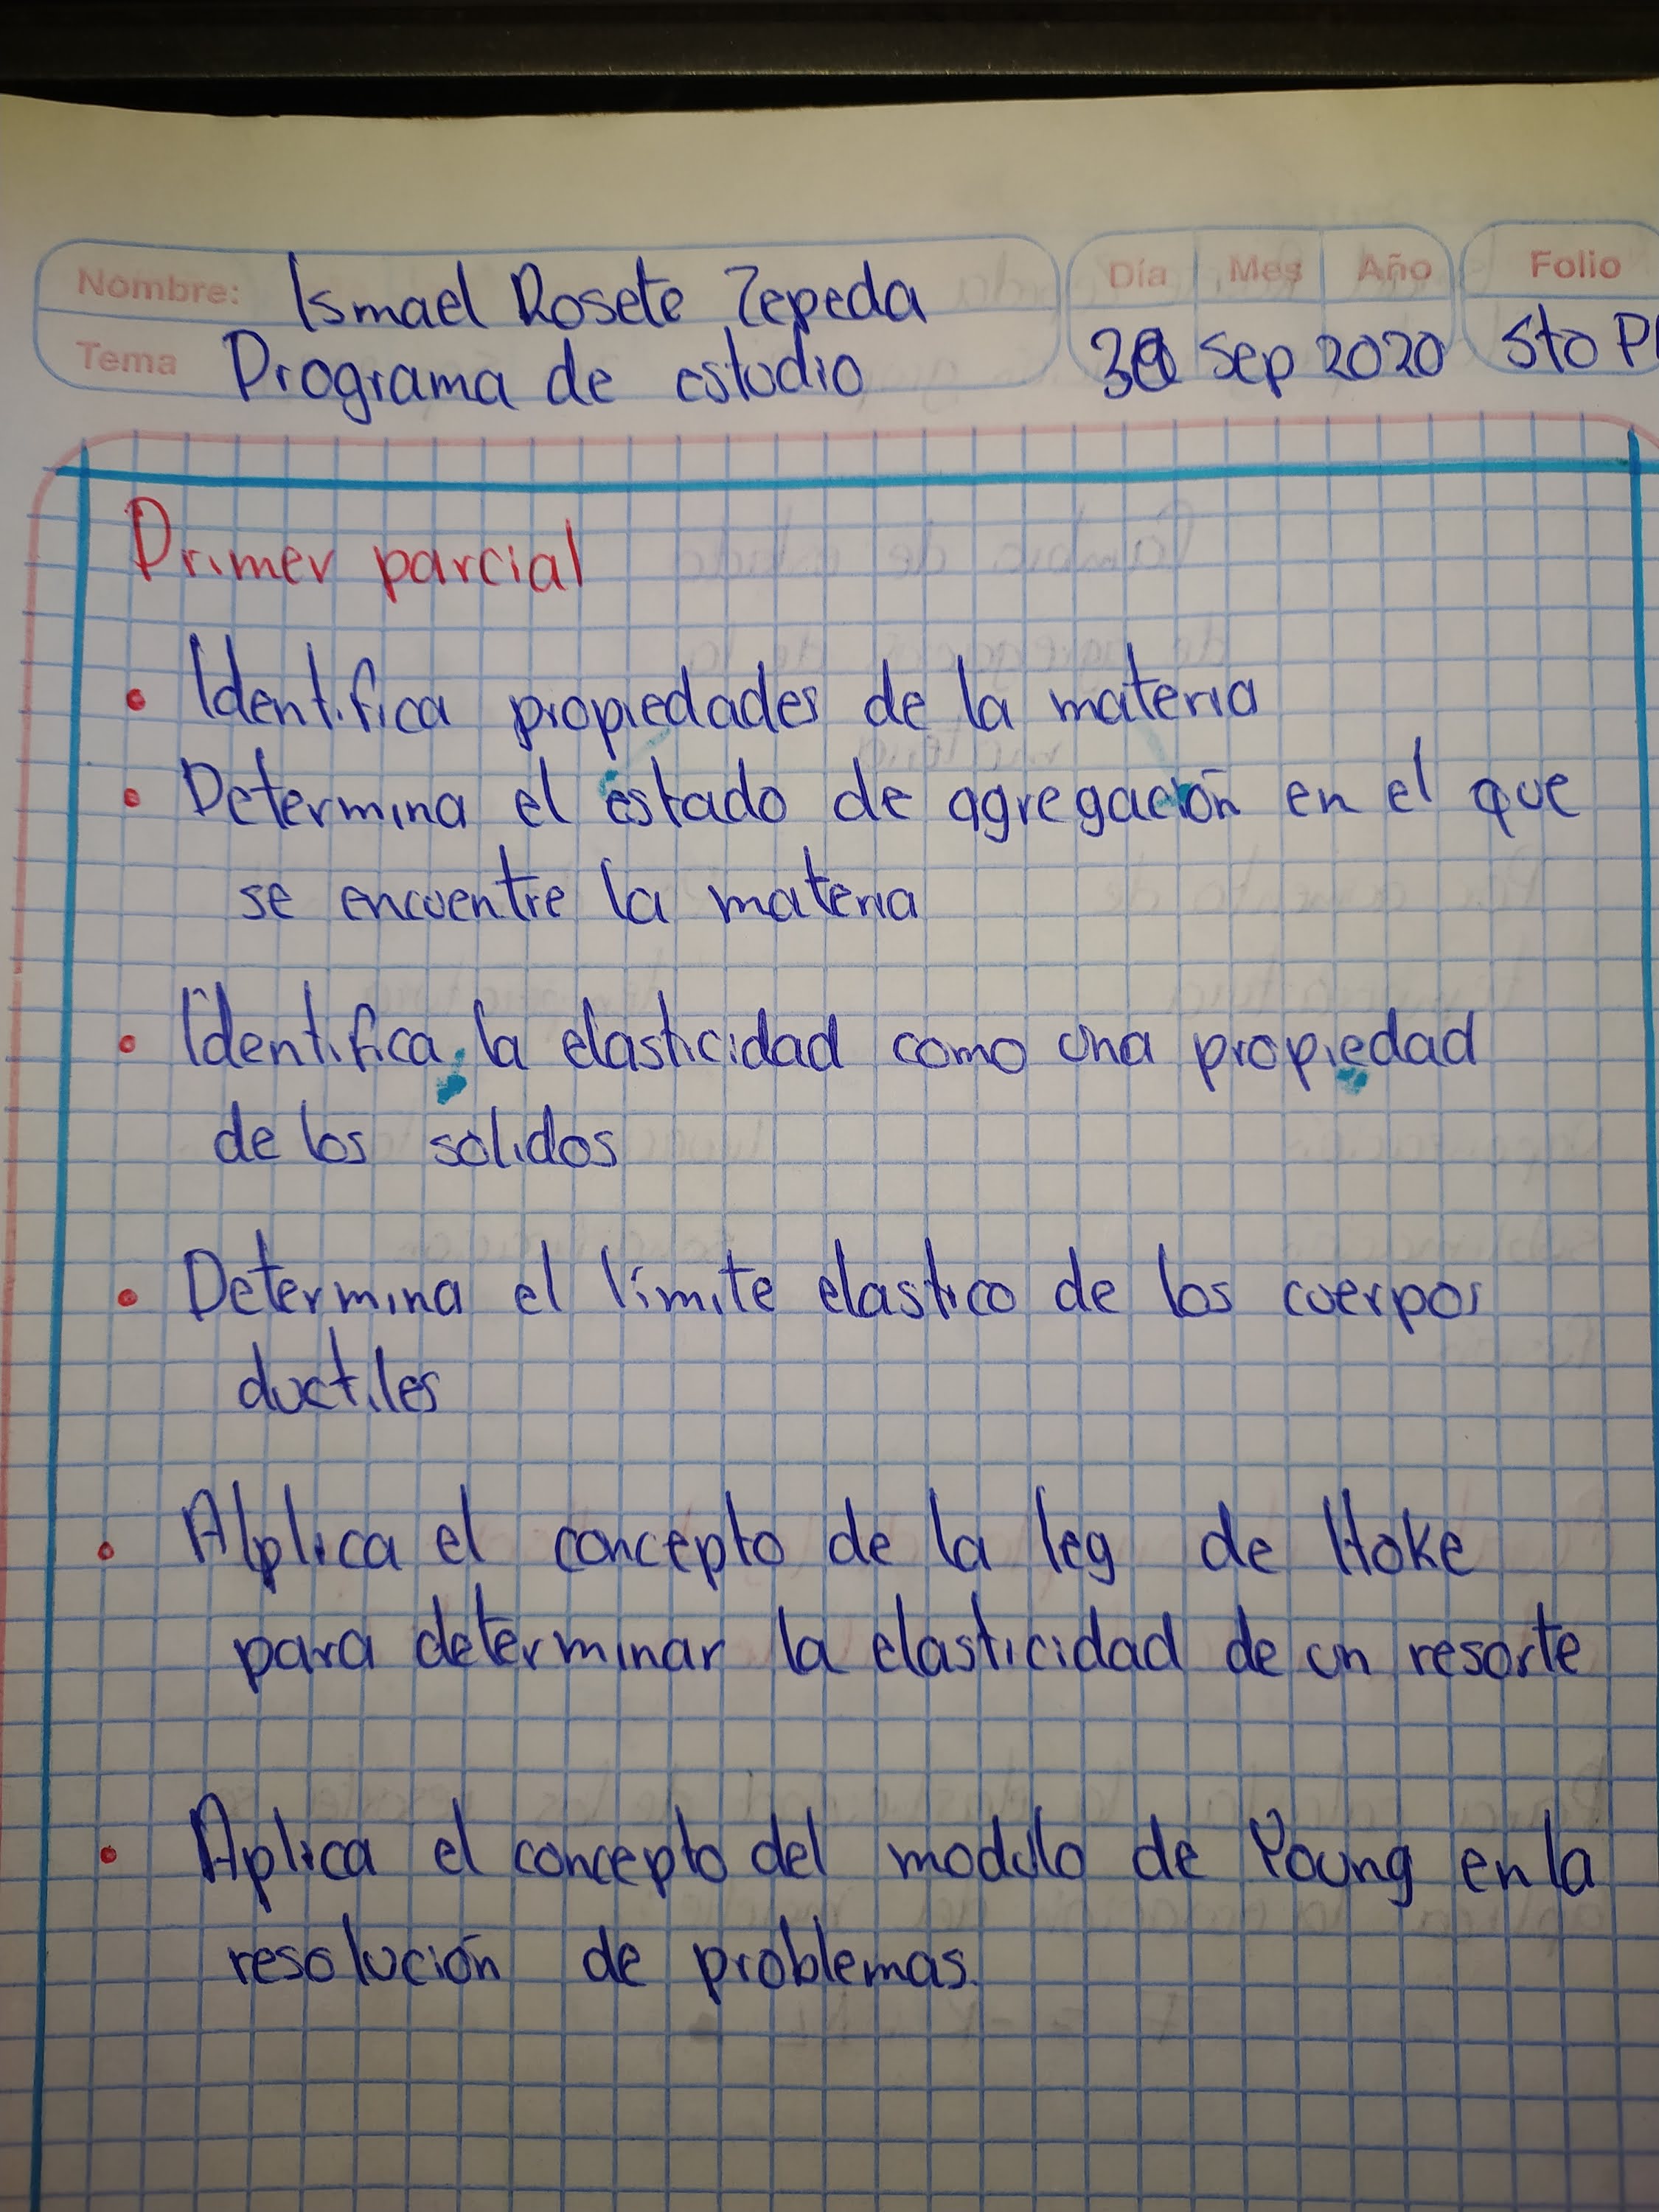 Nombre: Ismael Rosete Zepeda Día Mes Año Folio
Tema Programa de estudio Sep 2020 5to
Primer parcial
• Identifica propiedades de la materia
• Determina el estado de agregación en el que
se encuentre la materia
• Identifica la elasticidad como una propiedad
de los sólidos
• Determina el límite elastico de los cuerpos
ductiles
• Aplica el concepto de la ley de Hoke
para determinar la elasticidad de un resorte
• Aplica el concepto del modulo de Young en la
resolución de problemas.